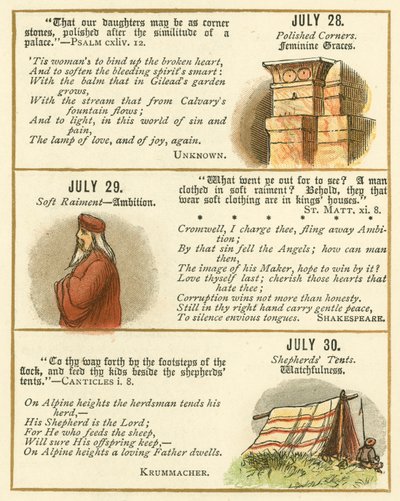 "That our daughters may be as corner
stones, polished after the similitude of a
palace."—PSALM cxliv. 12.
'Tis woman's to bind up the broken heart,
And to soften the bleeding spirit's smart:
With the balm that in Gilead's garden
grows,
With the stream that from Calvary's
fountain flows;
And to light, in this world of sin and
pain,
The lamp of love, and of joy, again.
UNKNOWN.
JULY 28.
Polished Corners.
Feminine Graces.
JULY 29.
Soft Raiment—Ambition.
"What went ye out for to see? A man
clothed in soft raiment? Behold, they that
wear soft clothing are in kings' houses."
ST. MATT. xi. 8.
* * * * * *
Cromwell, I charge thee, fling away Ambi-
tion;
By that sin fell the Angels; how can man
then,
The image of his Maker, hope to win by it?
Love thyself last; cherish those hearts that
hate thee;
Corruption wins not more than honesty.
Still in thy right hand carry gentle peace,
To silence envious tongues. SHAKESPEARE.
"Go thy way forth by the footsteps of the
flock, and feed thy kids beside the shepherds'
tents."—CANTICLES i. 8.
On Alpine heights the herdsman tends his
herd,—
His Shepherd is the Lord;
For He who feeds the sheep,
Will sure His offspring keep,—
On Alpine heights a loving Father dwells.
KRUMMACHER.
JULY 30.
Shepherds' Tents.
Watchfulness.